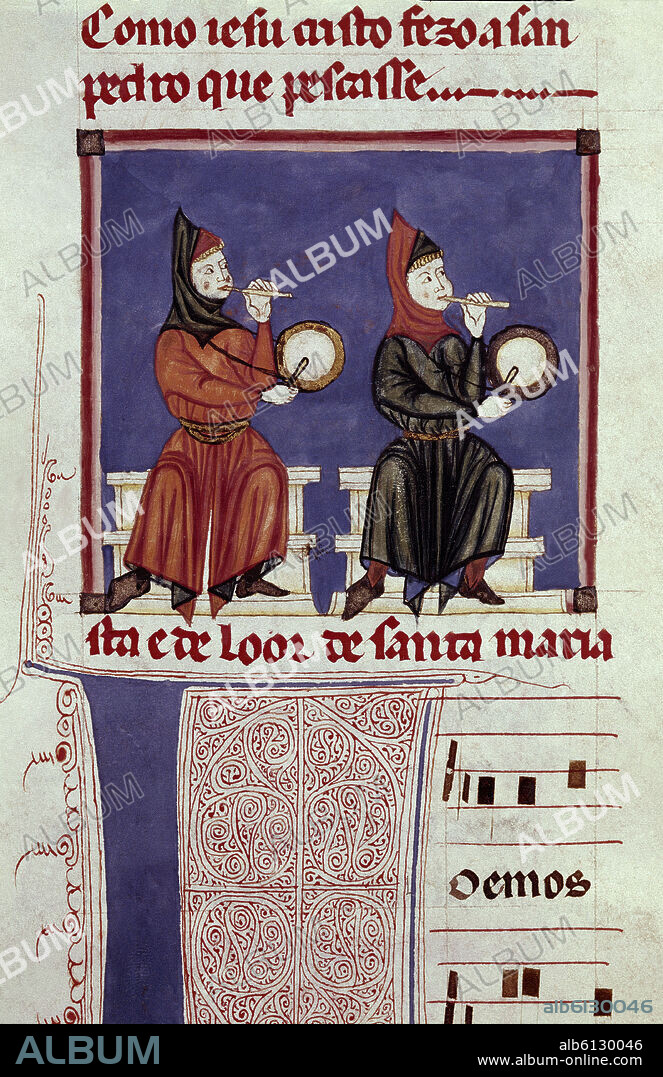 Como iesu cristo fezo a san
pedro que pescasse
sta e de loor de santa maria
Demos
ALBUM
alb6130046
ALBUM
alb6130046
www.album-online.com